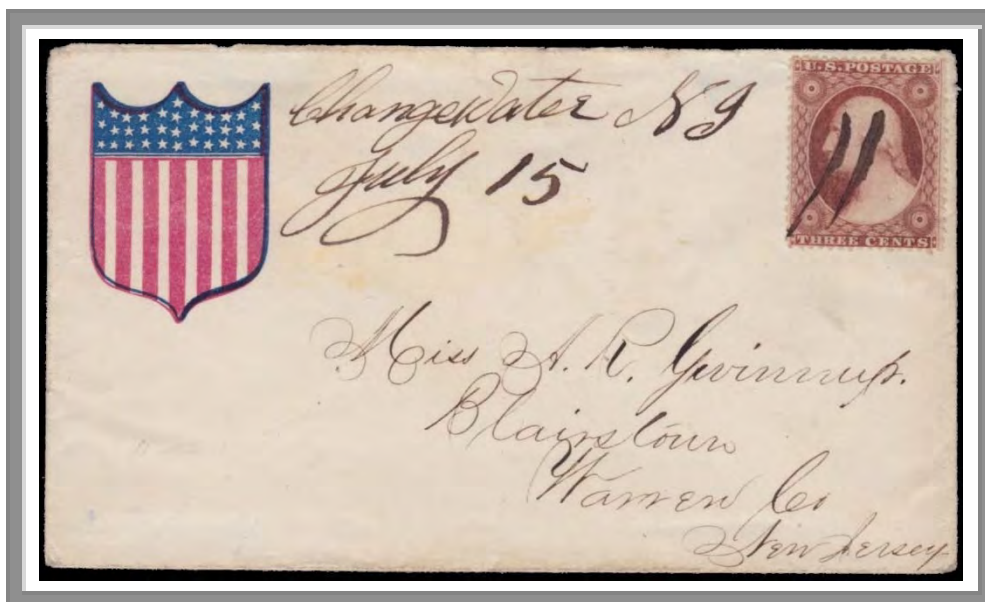 Changewater NJ
July 15
U.S. POSTAGE
THREE CENTS
Miss A. R. Gwinnup.
Blairstown
Warren Co
New Jersey